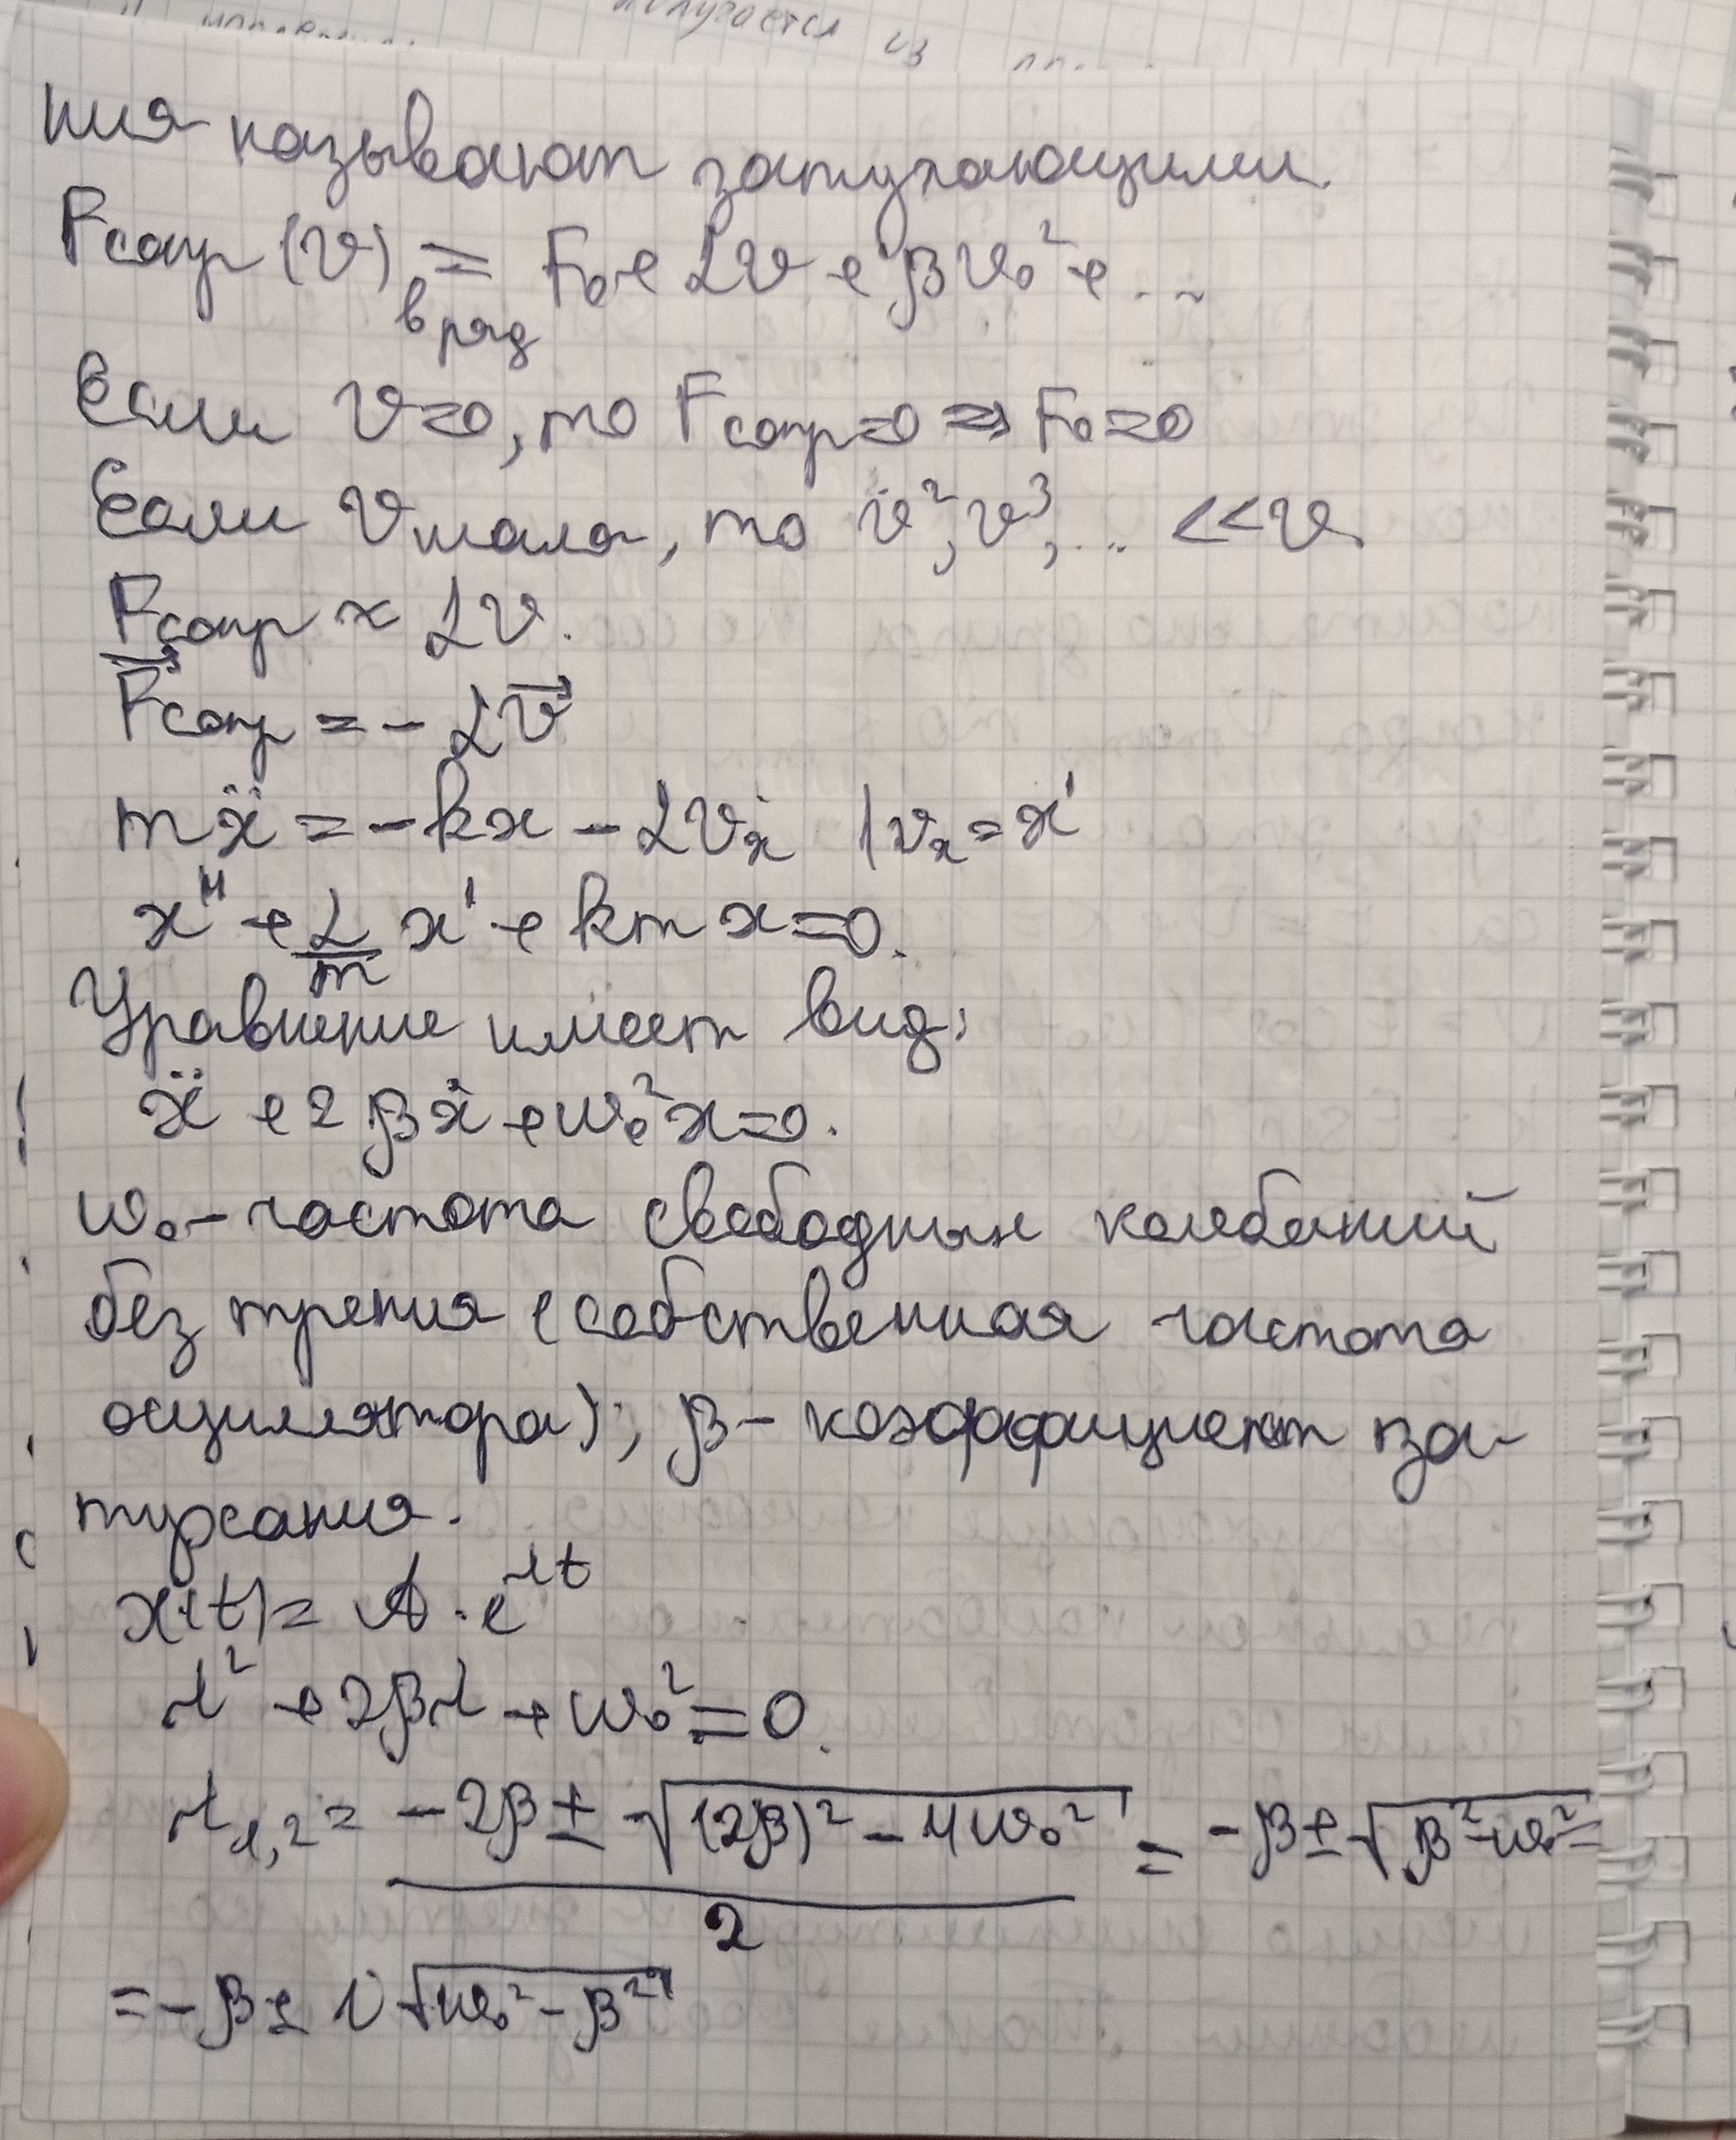 получается из
ния называют затухающими.
Fсопр (v) = F₀ + αv + βv₀² + ...
в ряд
Если v=0, то Fсопр=0 ⇒ F₀=0
Если v мала, то v², v³, ... << v.
Fсопр ≈ αv.
F⃗сопр = - αv⃗
mẍ = -kx - αvₓ | vₓ = x'
x'' + α/m x' + km x = 0.
Уравнение имеет вид:
ẍ + 2βẋ + ω₀²x = 0.
ω₀ - частота свободных колебаний
без трения (собственная частота
осциллятора); β - коэффициент за-
тухания.
x(t) = A · e^λt
λ² + 2βλ + ω₀² = 0.
λ₁,₂ = (-2β ± √((2β)² - 4ω₀²))/2 = -β ± √(β² - ω₀²) =
= -β ± i √(ω₀² - β²)